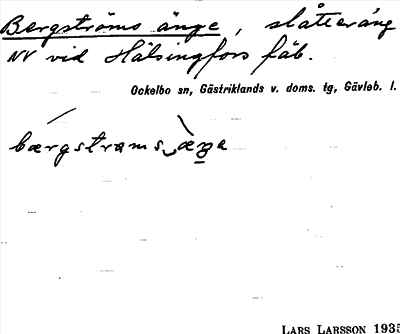 Bergströms änge, slåtteräng
NV vid Hälsingfors fäb.
Ockelbo sn, Gästriklands v. doms. tg, Gävleb. l.
bærgstrams æŋa
LARS LARSSON 1935